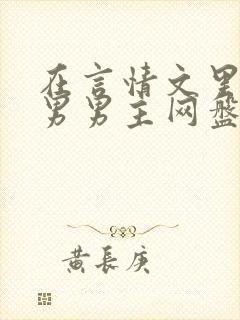 在言情文里
男男主网盘
黄长庚